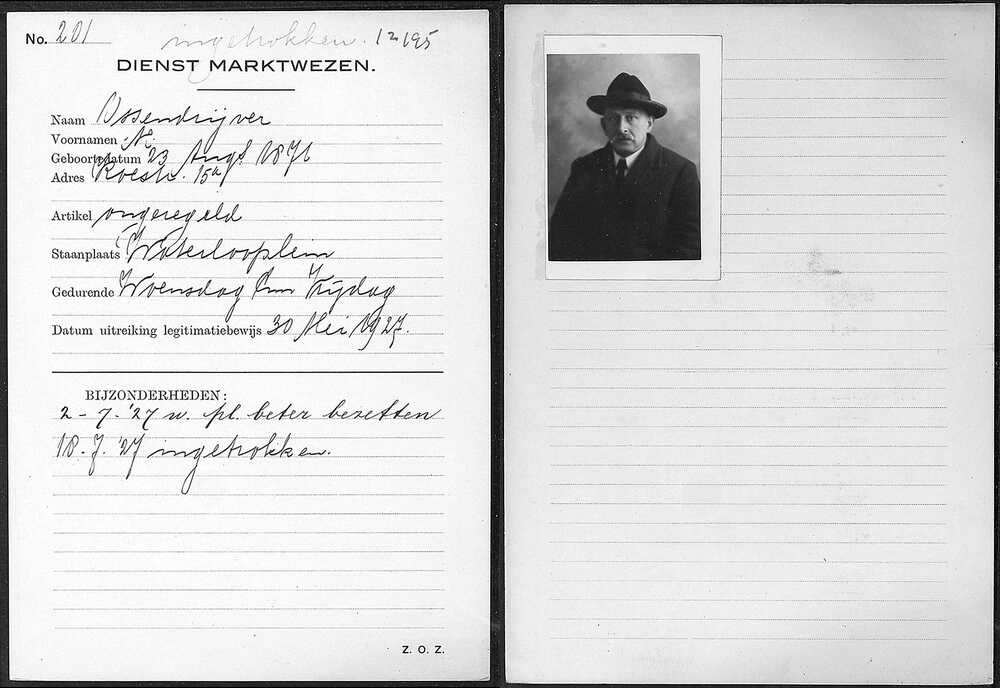 No. 201 ingetrokken. 12195
DIENST MARKTWEZEN.
Naam Ossendrijver
Voornamen N.
Geboortedatum 23 Aug. 1871
Adres Roestr. 15a
Artikel ongeregeld
Staanplaats Waterlooplein
Gedurende Woensdag Vrijdag
Datum uitreiking legitimatiebewijs 30 Mei 1927.
BIJZONDERHEDEN:
2-7-'27 w. pl. beter bezetten
18.7.'27 ingetrokken.
Z. O. Z.